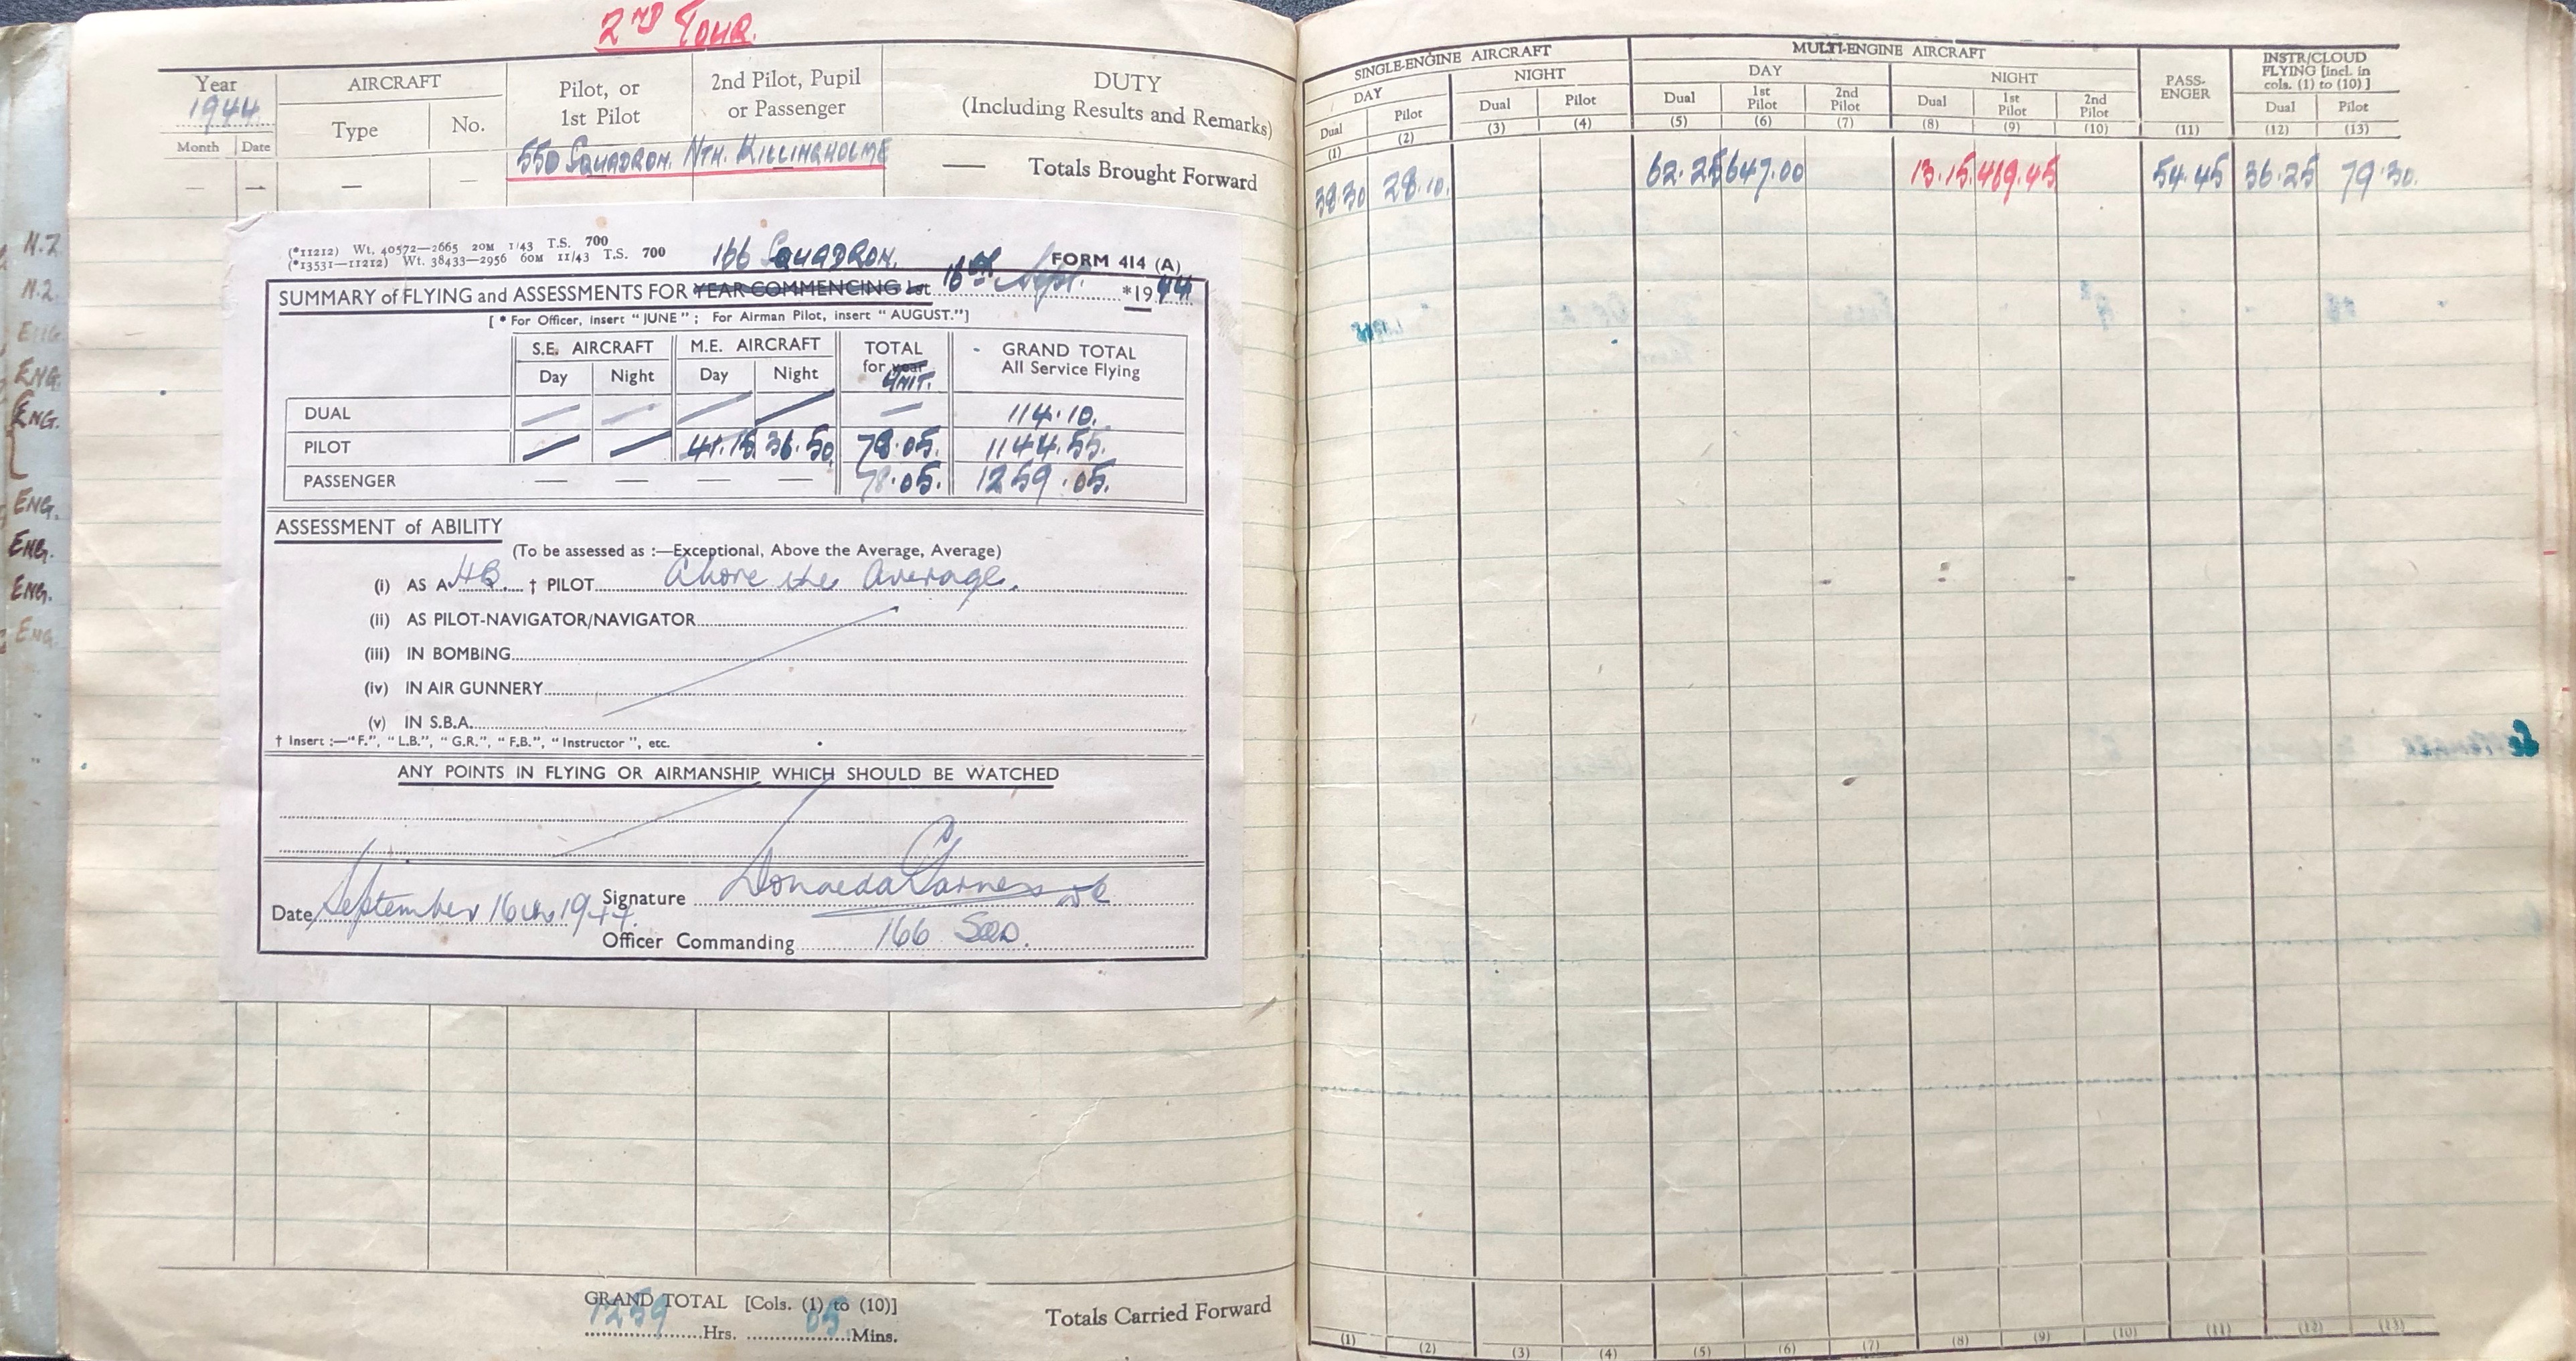 2ND TOUR.
Year 1944
Month Date
AIRCRAFT
Type No.
Pilot, or 1st Pilot
2nd Pilot, Pupil or Passenger
DUTY
(Including Results and Remarks)
550 SQUADRON. NTH. KILLINGHOLME
— — — — — Totals Brought Forward
N.2
N.2.
ENG.
ENG.
ENG.
ENG.
ENG.
ENG.
ENG.
(*11212) Wt. 40572—2665 20M 1/43 T.S. 700
(*13531—11212) Wt. 38433—2956 60M 11/43 T.S. 700
166 SQUADRON.
FORM 414 (A)
SUMMARY of FLYING and ASSESSMENTS FOR YEAR COMMENCING 1st 16th Sept. *1944
[* For Officer, insert "JUNE"; For Airman Pilot, insert "AUGUST."]
S.E. AIRCRAFT M.E. AIRCRAFT TOTAL for year UNIT. GRAND TOTAL All Service Flying
Day Night Day Night
DUAL — 114.10.
PILOT 41.15 36.50 78.05. 1144.55.
PASSENGER — — — — 78.05. 1259.05.
ASSESSMENT of ABILITY
(To be assessed as :—Exceptional, Above the Average, Average)
(i) AS A HB. † PILOT Above the Average.
(ii) AS PILOT-NAVIGATOR/NAVIGATOR
(iii) IN BOMBING
(iv) IN AIR GUNNERY
(v) IN S.B.A.
† Insert :—"F.", "L.B.", "G.R.", "F.B.", "Instructor", etc.
ANY POINTS IN FLYING OR AIRMANSHIP WHICH SHOULD BE WATCHED
Date September 16th 1944. Signature
Officer Commanding 166 Sqn.
GRAND TOTAL [Cols. (1) to (10)]
1259 Hrs. 05 Mins.
Totals Carried Forward
SINGLE-ENGINE AIRCRAFT MULTI-ENGINE AIRCRAFT PASS-ENGER INSTR/CLOUD FLYING [incl. in cols. (1) to (10)]
DAY NIGHT DAY NIGHT
Dual Pilot Dual Pilot Dual 1st Pilot 2nd Pilot Dual 1st Pilot 2nd Pilot Dual Pilot
(1) (2) (3) (4) (5) (6) (7) (8) (9) (10) (11) (12) (13)
38.30 28.10. 62.25 647.00 13.15. 469.45 54.45 36.25 79.30.
(1) (2) (3) (4) (5) (6) (7) (8) (9) (10) (11) (12) (13)